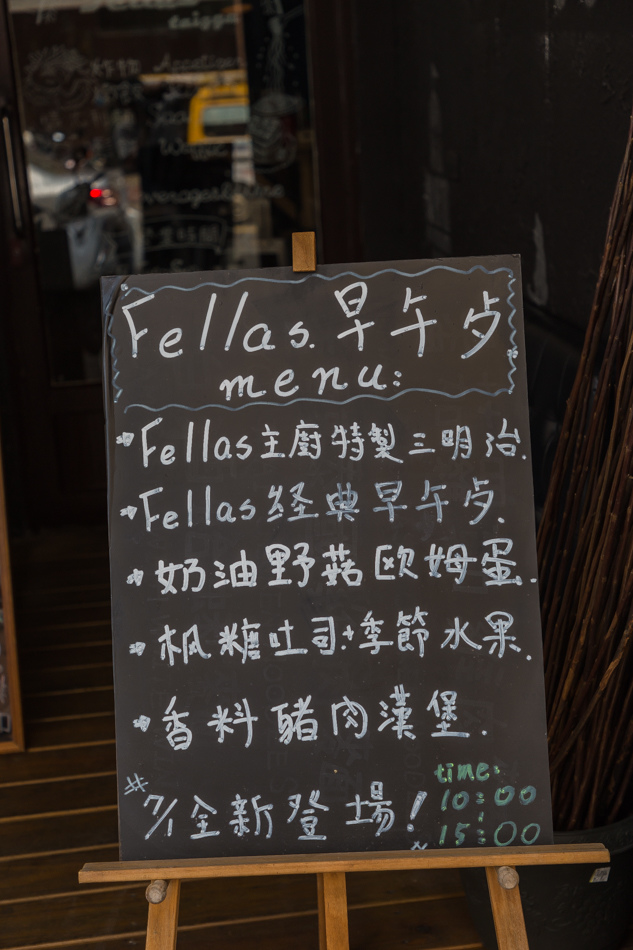 Fellas. 早午歺
menu:
Fellas主廚特製三明治.
Fellas经典早午歺.
奶油野菇欧姆蛋.
枫糖吐司+季節水果.
香料豬肉漢堡.
#7/1全新登場!
time:
10:00
15:00